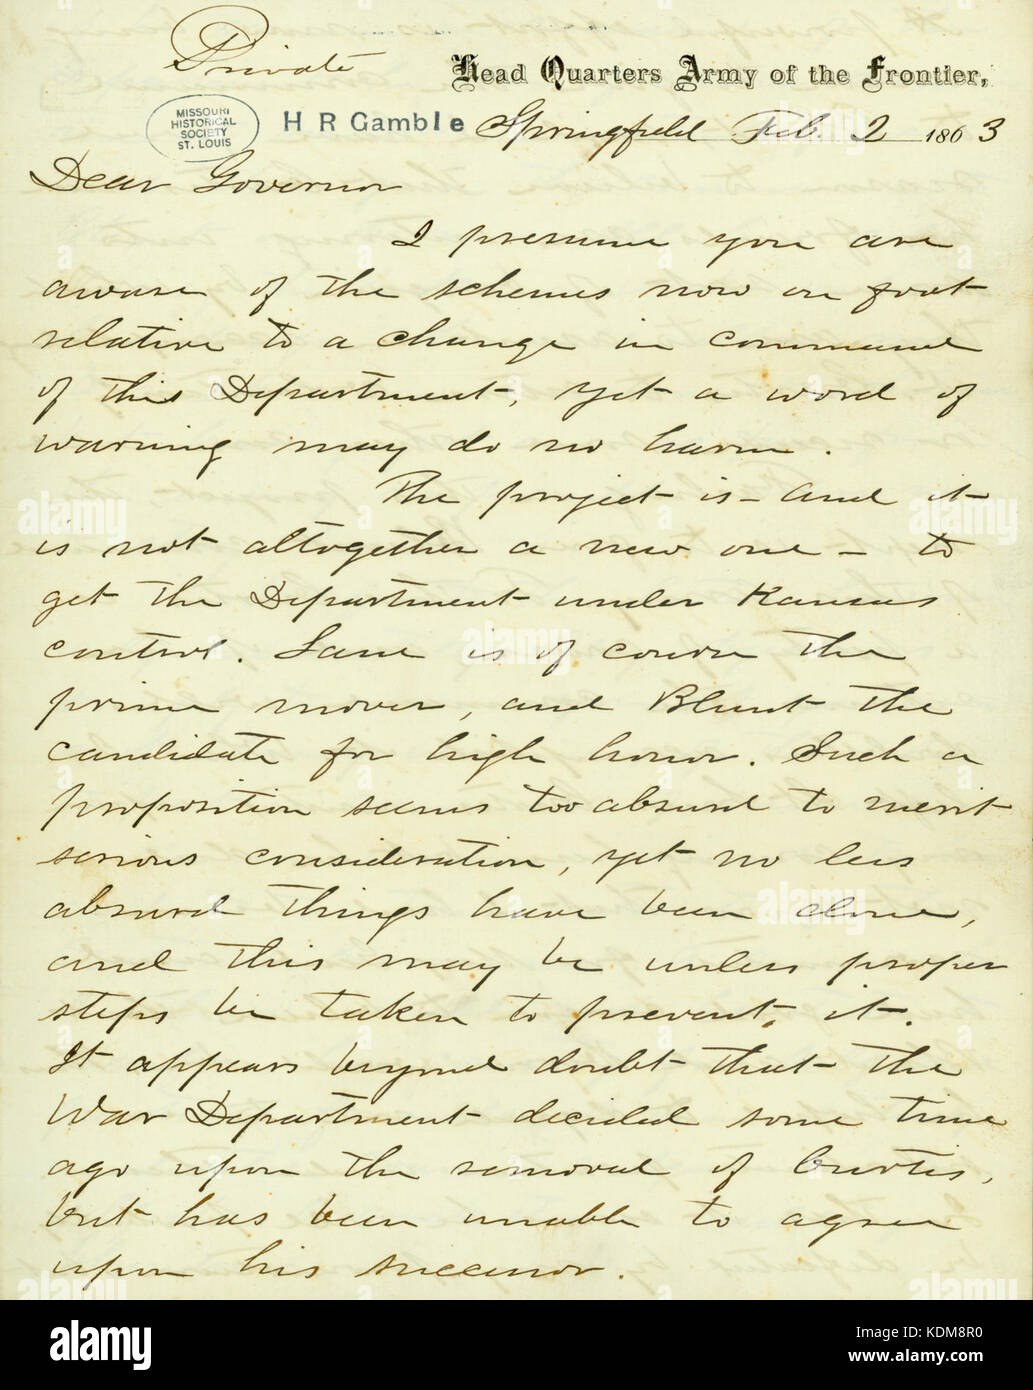 Private
Head Quarters Army of the Frontier,
MISSOURI
HISTORICAL
SOCIETY
ST. LOUIS
H R Gamble
Springfield Feb. 2 1863
Dear Governor
I presume you are
aware of the schemes now on foot
relative to a change in command
of this Department, yet a word of
warning may do no harm.
The project is – and it
is not altogether a new one – to
get the Department under Kansas
control. Lane is of course the
prime mover, and Blunt the
candidate for high honor. Such a
proposition seems too absurd to merit
serious consideration, yet no less
absurd things have been done,
and this may be unless proper
steps be taken to prevent it.
It appears beyond doubt that the
War Department decided some time
ago upon the removal of Curtis,
but has been unable to agree
upon his successor.
alamy
Image ID: KDM8R0
www.alamy.com